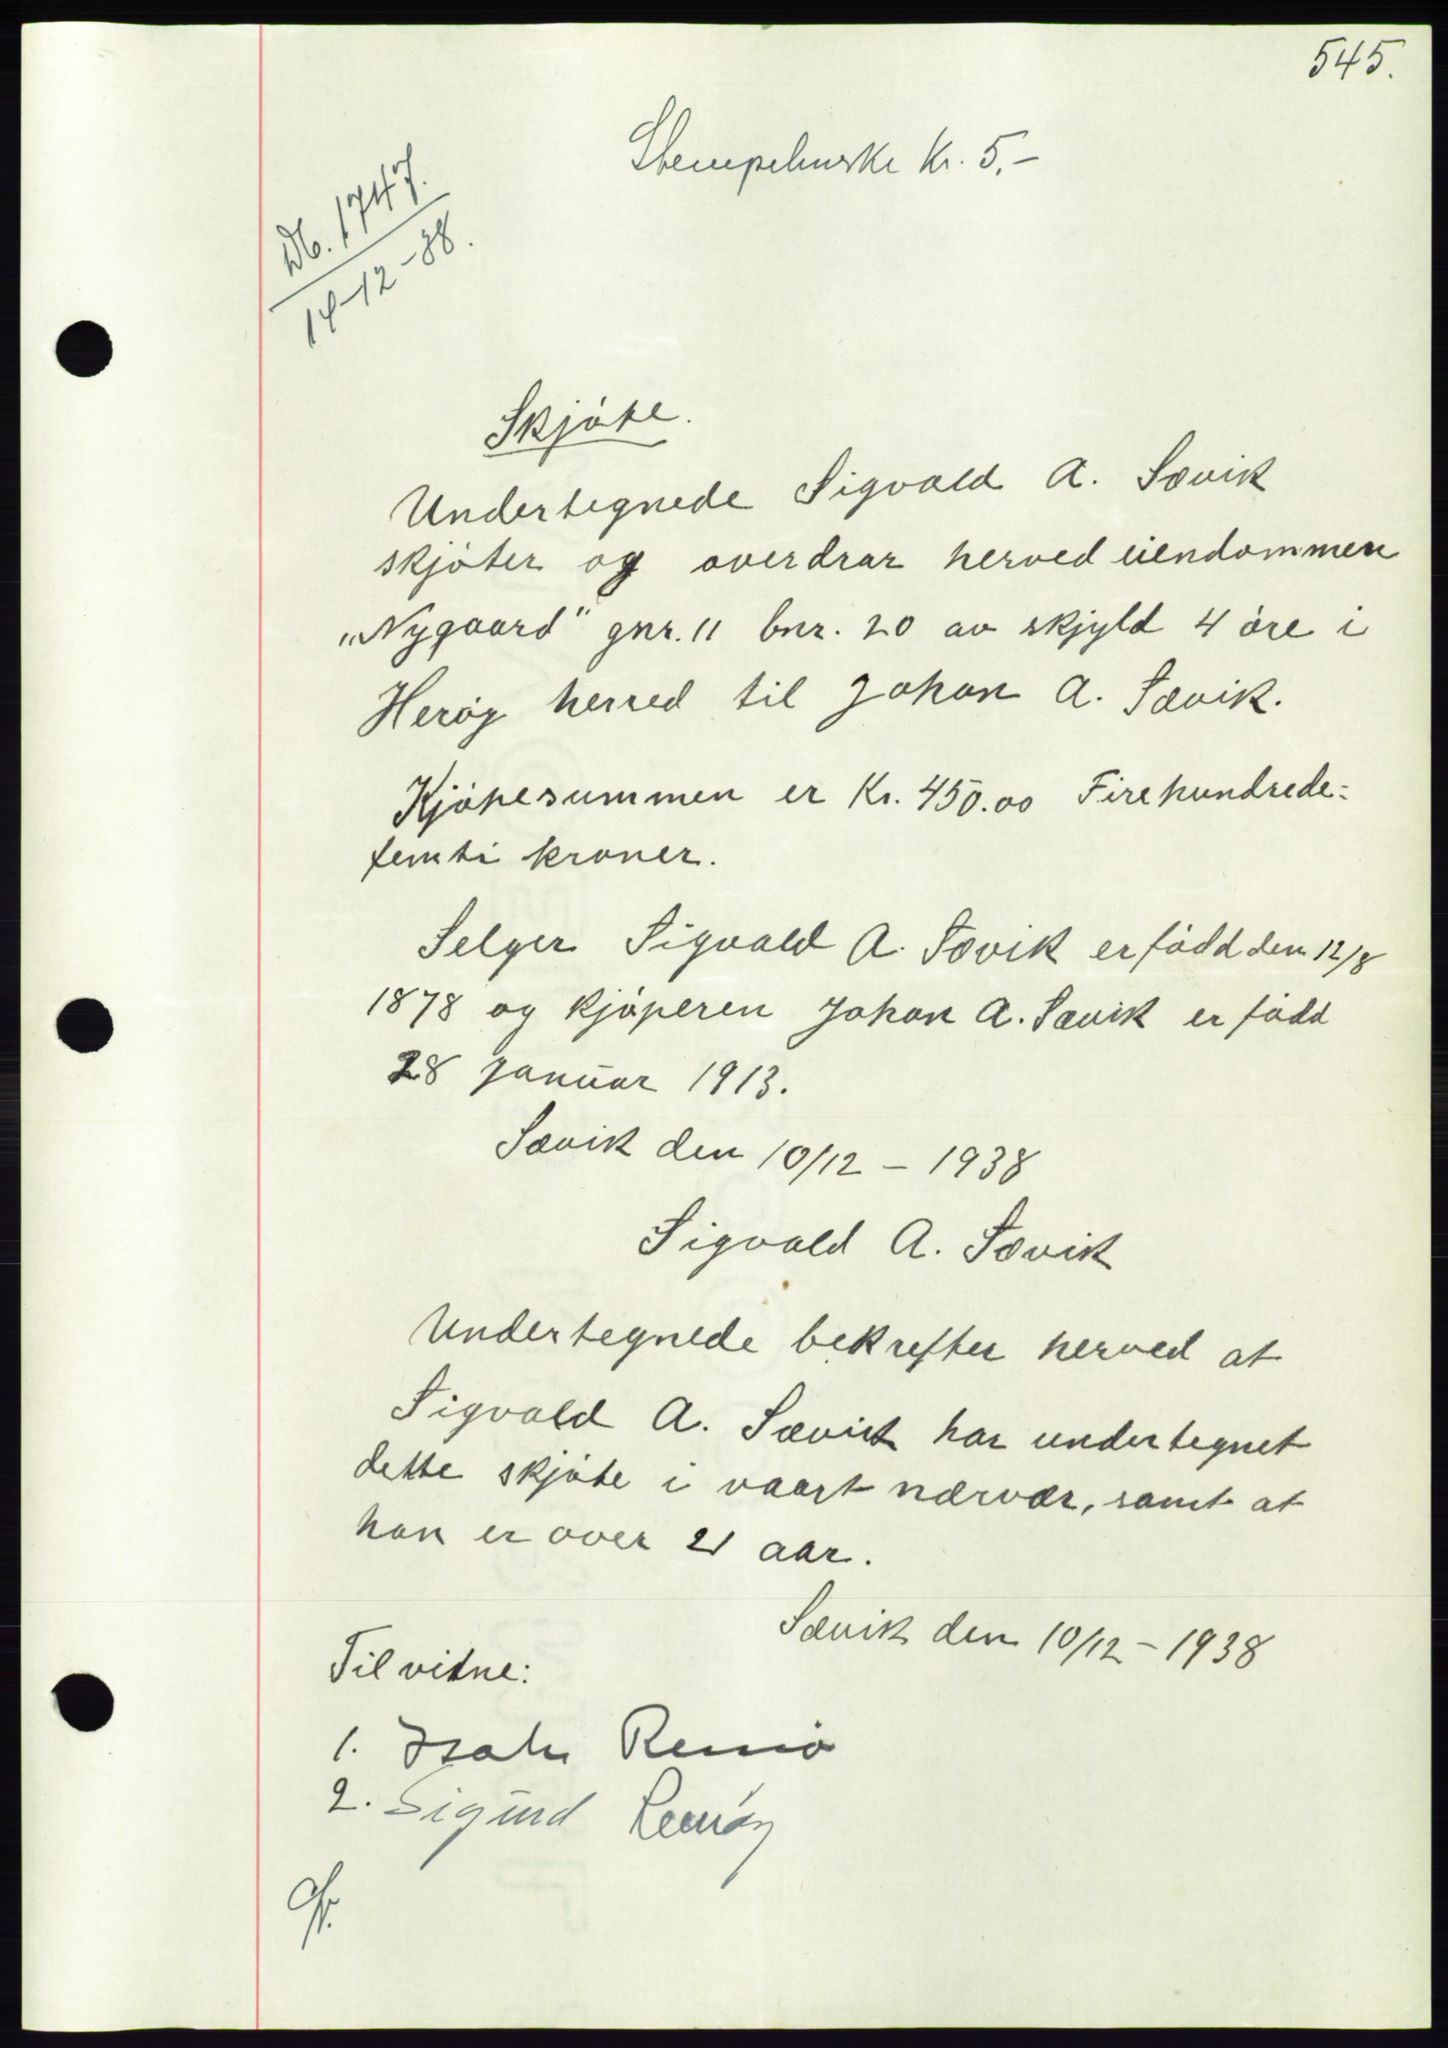 545.
Stempelmerke Kr. 5.-
Db. 1747.
14-12-38.
Skjöte.
Undertegnede Sigvald A. Sævik
skjöter og overdrar herved eiendommen
„Nygaard" gnr. 11 bnr. 20 av skjyld 4 öre i
Heröy herred til Johan A. Sævik.
Kjöpesummen er Kr. 450.00 Firehundrede=
femti kroner.
Selger Sigvald A. Sævik er född den 12/8
1878 og kjöperen Johan A. Sævik er född
28 januar 1913.
Sævik den 10/12 - 1938
Sigvald A. Sævik
Undertegnede bekrefter herved at
Sigvald A. Sævik har undertegnet
dette skjöte i vaart nærvær, samt at
han er over 21 aar.
Sævik den 10/12 - 1938
Til vitne:
1. Isak Remö
2. Sigurd Remöy